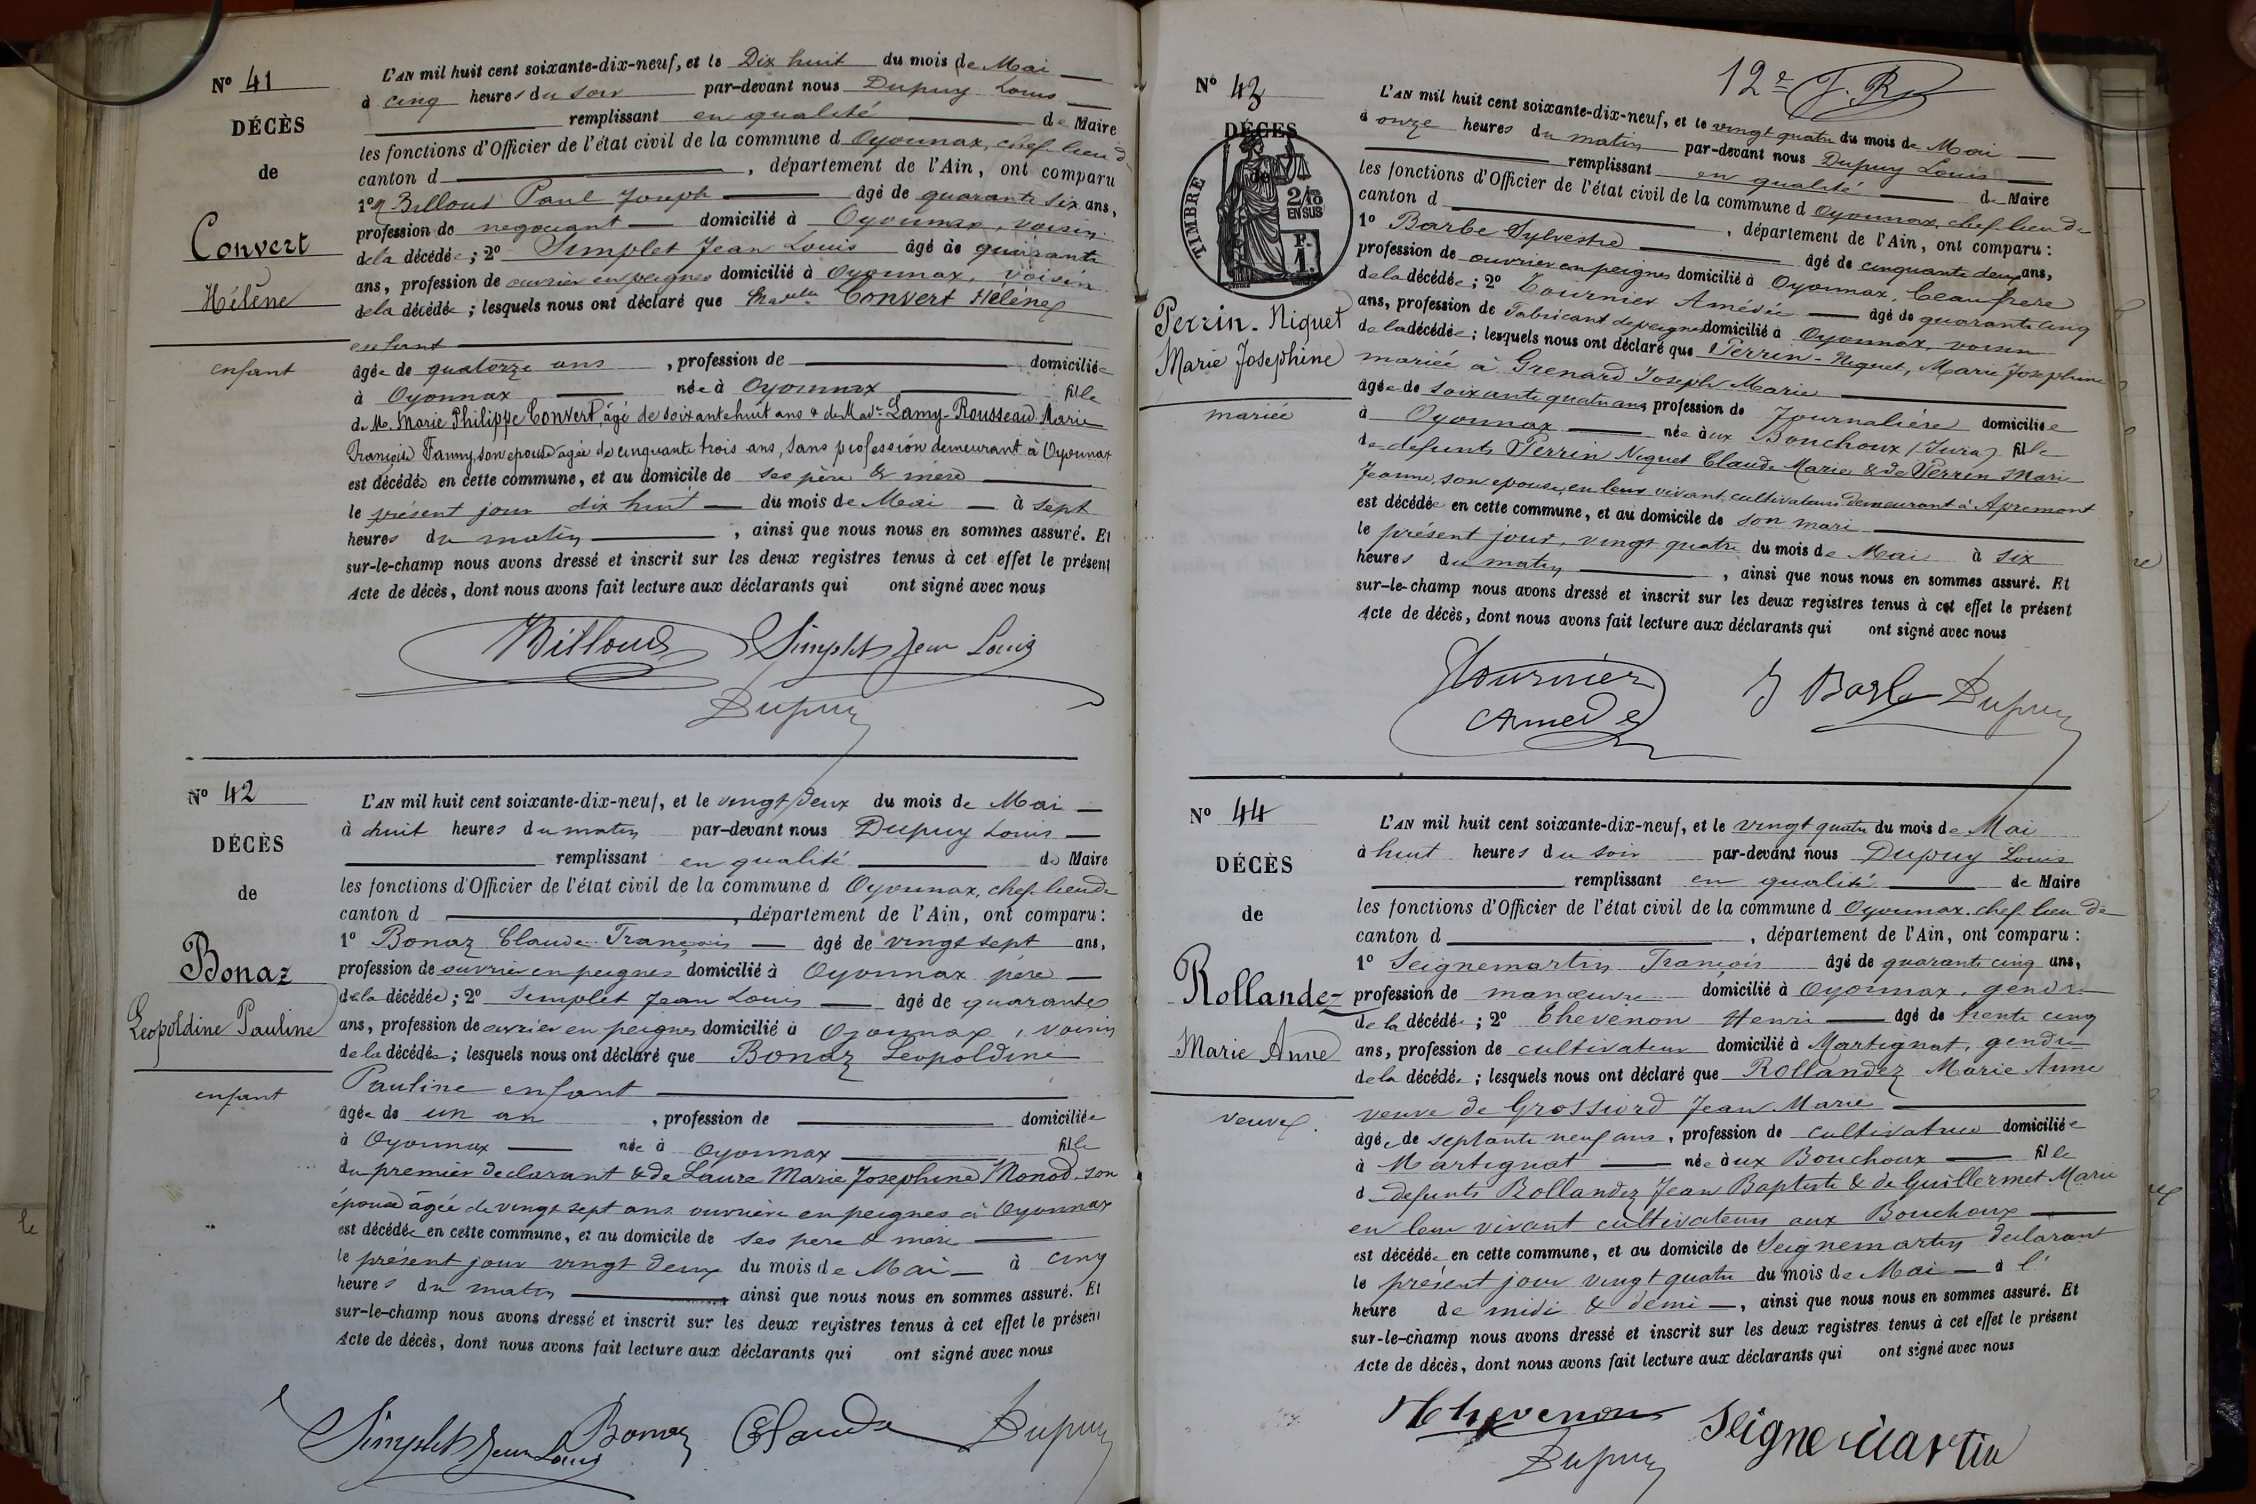 Nº 41
DÉCÈS
de
Convert
Hélène
enfant
L'AN mil huit cent soixante-dix-neuf, et le Dix huit du mois de Mai
à cinq heures du soir par-devant nous Dupuy Louis
remplissant en qualité de Maire
les fonctions d'Officier de l'état civil de la commune d Oyonnax, chef lieu d
canton d , département de l'Ain, ont comparu
1º Billoud Paul Joseph âgé de quarante six ans,
profession de negociant domicilié à Oyonnax, voisin
de la décédée ; 2º Simplet Jean Louis âgé de quarante
ans, profession de ouvrier en peignes domicilié à Oyonnax, voisin
de la décédée ; lesquels nous ont déclaré que Convert Hélène
enfant
âgée de quatorze ans , profession de domiciliée
à Oyonnax née à Oyonnax fille
de M. Marie Philippe Convert, âgé de soixante huit ans & de Mad. Lamy-Rousseau Marie
Françoise Fanny, son epouse agée de cinquante trois ans, sans profession demeurant à Oyonnax
est décédée en cette commune, et au domicile de ses père & mère
le présent jour dix huit du mois de Mai à sept
heures du matin , ainsi que nous nous en sommes assuré. Et
sur-le-champ nous avons dressé et inscrit sur les deux registres tenus à cet effet le présent
Acte de décès, dont nous avons fait lecture aux déclarants qui ont signé avec nous
Billoud Simplet Jean Louis
Dupuy
Nº 42
DÉCÈS
de
Bonaz
Leopoldine Pauline
enfant
L'AN mil huit cent soixante-dix-neuf, et le vingt deux du mois de Mai
à huit heures du matin par-devant nous Dupuy Louis
remplissant en qualité de Maire
les fonctions d'Officier de l'état civil de la commune d Oyonnax, chef lieu de
canton d , département de l'Ain, ont comparu :
1º Bonaz Claude François âgé de vingt sept ans,
profession de ouvrier en peignes domicilié à Oyonnax père
de la décédée ; 2º Simplet Jean Louis âgé de quarante
ans, profession de ouvrier en peignes domicilié à Oyonnax, voisin
de la décédée ; lesquels nous ont déclaré que Bonaz Leopoldine
Pauline enfant
âgée de un an , profession de domiciliée
à Oyonnax née à Oyonnax fille
du premier declarant & de Laure Marie Josephine Monod, son
épouse âgée de vingt sept ans ouvrière en peignes à Oyonnax
est décédée en cette commune, et au domicile de ses père & mère
le présent jour vingt deux du mois de Mai à cinq
heures du matin ainsi que nous nous en sommes assuré. Et
sur-le-champ nous avons dressé et inscrit sur les deux registres tenus à cet effet le présent
Acte de décès, dont nous avons fait lecture aux déclarants qui ont signé avec nous
Simplet Jean Louis Bonaz Claude Dupuy
12e F. R
Nº 43
DÉCÈS
de
TIMBRE
2/10 EN SUS
F. 1.
Perrin-Niquet
Marie Josephine
mariée
L'AN mil huit cent soixante-dix-neuf, et le vingt quatre du mois de Mai
à onze heures du matin par-devant nous Dupuy Louis
remplissant en qualité de Maire
les fonctions d'Officier de l'état civil de la commune d Oyonnax, chef lieu de
canton d , département de l'Ain, ont comparu :
1º Barbe Sylvestre âgé de cinquante deux ans,
profession de ouvrier en peignes domicilié à Oyonnax, beau frère
de la décédée ; 2º Tournier Amédée âgé de quarante cinq
ans, profession de Fabricant de peignes domicilié à Oyonnax, voisin
de la décédée ; lesquels nous ont déclaré que Perrin-Niquet, Marie Josephine
mariée à Grenard Joseph Marie
âgée de soixante quatre ans profession de Journalière domiciliée
à Oyonnax née aux Bouchoux (Jura) fille
de defunts Perrin Niquet Claude Marie & de Perrin Marie
Jeanne, son epouse, en leur vivant cultivateurs demeurant à Apremont
est décédée en cette commune, et au domicile de son mari
le présent jour, vingt quatre du mois de Mai à six
heures du matin , ainsi que nous nous en sommes assuré. Et
sur-le-champ nous avons dressé et inscrit sur les deux registres tenus à cet effet le présent
Acte de décès, dont nous avons fait lecture aux déclarants qui ont signé avec nous
Tournier Amede S Barbe Dupuy
Nº 44
DÉCÈS
de
Rollandez
Marie Anne
veuve
L'AN mil huit cent soixante-dix-neuf, et le vingt quatre du mois de Mai
à huit heures du soir par-devant nous Dupuy Louis
remplissant en qualité de Maire
les fonctions d'Officier de l'état civil de la commune d Oyonnax, chef lieu de
canton d , département de l'Ain, ont comparu :
1º Seignemartin François âgé de quarante cinq ans,
profession de manœuvre domicilié à Oyonnax, gendre
de la décédée ; 2º Thevenon Henri âgé de trente cinq
ans, profession de cultivateur domicilié à Martignat, gendre
de la décédée ; lesquels nous ont déclaré que Rollandez Marie Anne
veuve de Grossiord Jean Marie
âgée de septante neuf ans, profession de cultivatrice domiciliée
à Martignat née aux Bouchoux fille
d defunts Rollandez Jean Baptiste & de Guillermet Marie
en leur vivant cultivateurs aux Bouchoux
est décédée en cette commune, et au domicile de Seignemartin declarant
le présent jour vingt quatre du mois de Mai à l'
heure de midi & demi , ainsi que nous nous en sommes assuré. Et
sur-le-champ nous avons dressé et inscrit sur les deux registres tenus à cet effet le présent
Acte de décès, dont nous avons fait lecture aux déclarants qui ont signé avec nous
H Thevenon Seignemartin
Dupuy